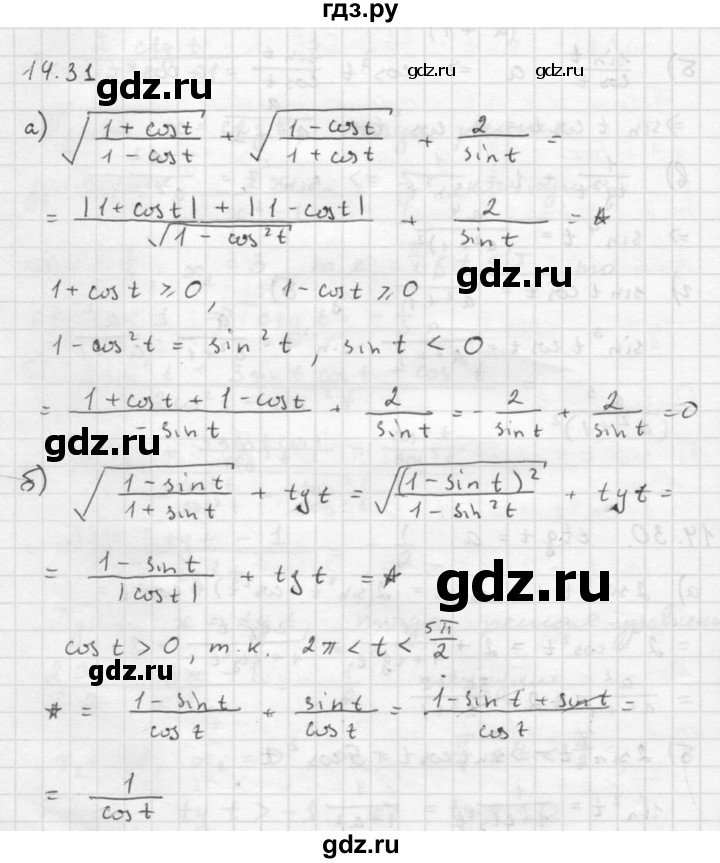 гдз.ру
14.31
gdz.ru gdz.ru
а) √((1 + cos t)/(1 - cos t)) + √((1 - cos t)/(1 + cos t)) + 2/sin t =
= (|1 + cos t| + |1 - cos t|)/√(1 - cos²t) + 2/sin t = *
gdz.ru
1 + cos t ≥ 0, 1 - cos t ≥ 0
1 - cos²t = sin²t, sin t < 0
gdz.ru
= (1 + cos t + 1 - cos t)/(- sin t) + 2/sin t = - 2/sin t + 2/sin t = 0
б) √((1 - sin t)/(1 + sin t)) + tg t = √((1 - sin t)²/(1 - sin²t)) + tg t =
= (1 - sin t)/|cos t| + tg t = *
gdz.ru
cos t > 0, т.к. 2π < t < 5π/2
* = (1 - sin t)/cos t + sin t/cos t = (1 - sin t + sin t)/cos t =
= 1/cos t
gdz.ru